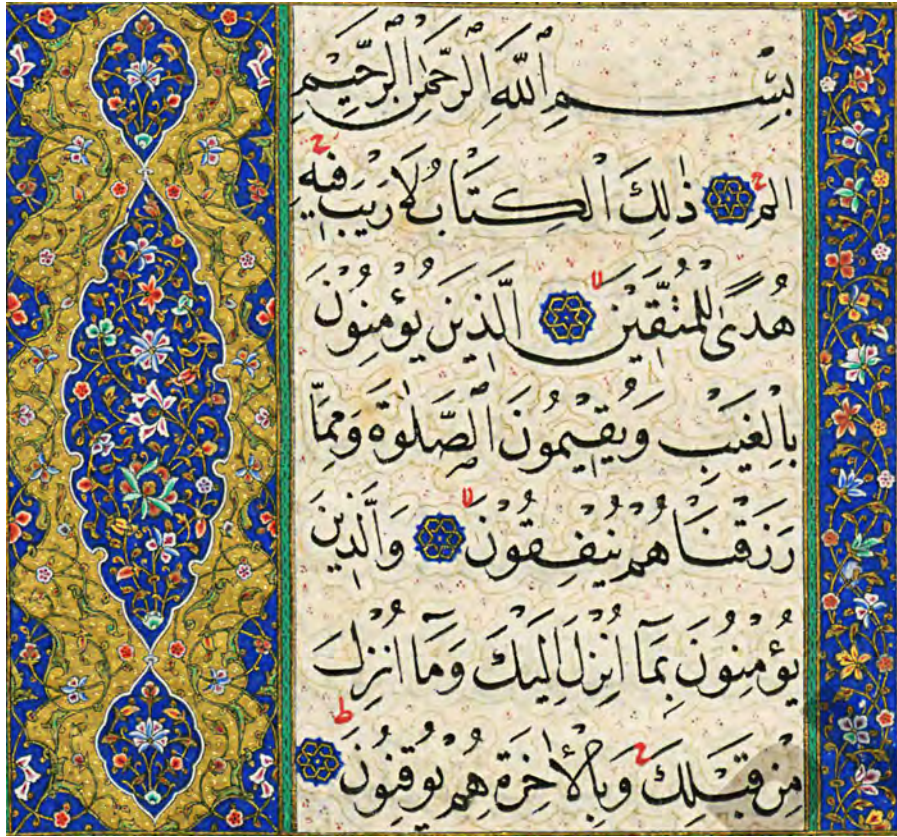 بِسْمِ اللهِ الرَّحْمٰنِ الرَّحِيْمِ
الم ج ذٰلِكَ الْكِتَابُ لَا رَيْبَ فِيْهِ ج
هُدًى لِلْمُتَّقِيْنَ لا الَّذِيْنَ يُؤْمِنُوْنَ
بِالْغَيْبِ وَيُقِيْمُوْنَ الصَّلٰوةَ وَمِمَّا
رَزَقْنَا هُمْ يُنْفِقُوْنَ لا وَالَّذِيْنَ
يُؤْمِنُوْنَ بِمَآ اُنْزِلَ اِلَيْكَ وَمَآ اُنْزِلَ
مِنْ قَبْلِكَ ج وَبِالْاٰخِرَةِ هُمْ يُوْقِنُوْنَ ط